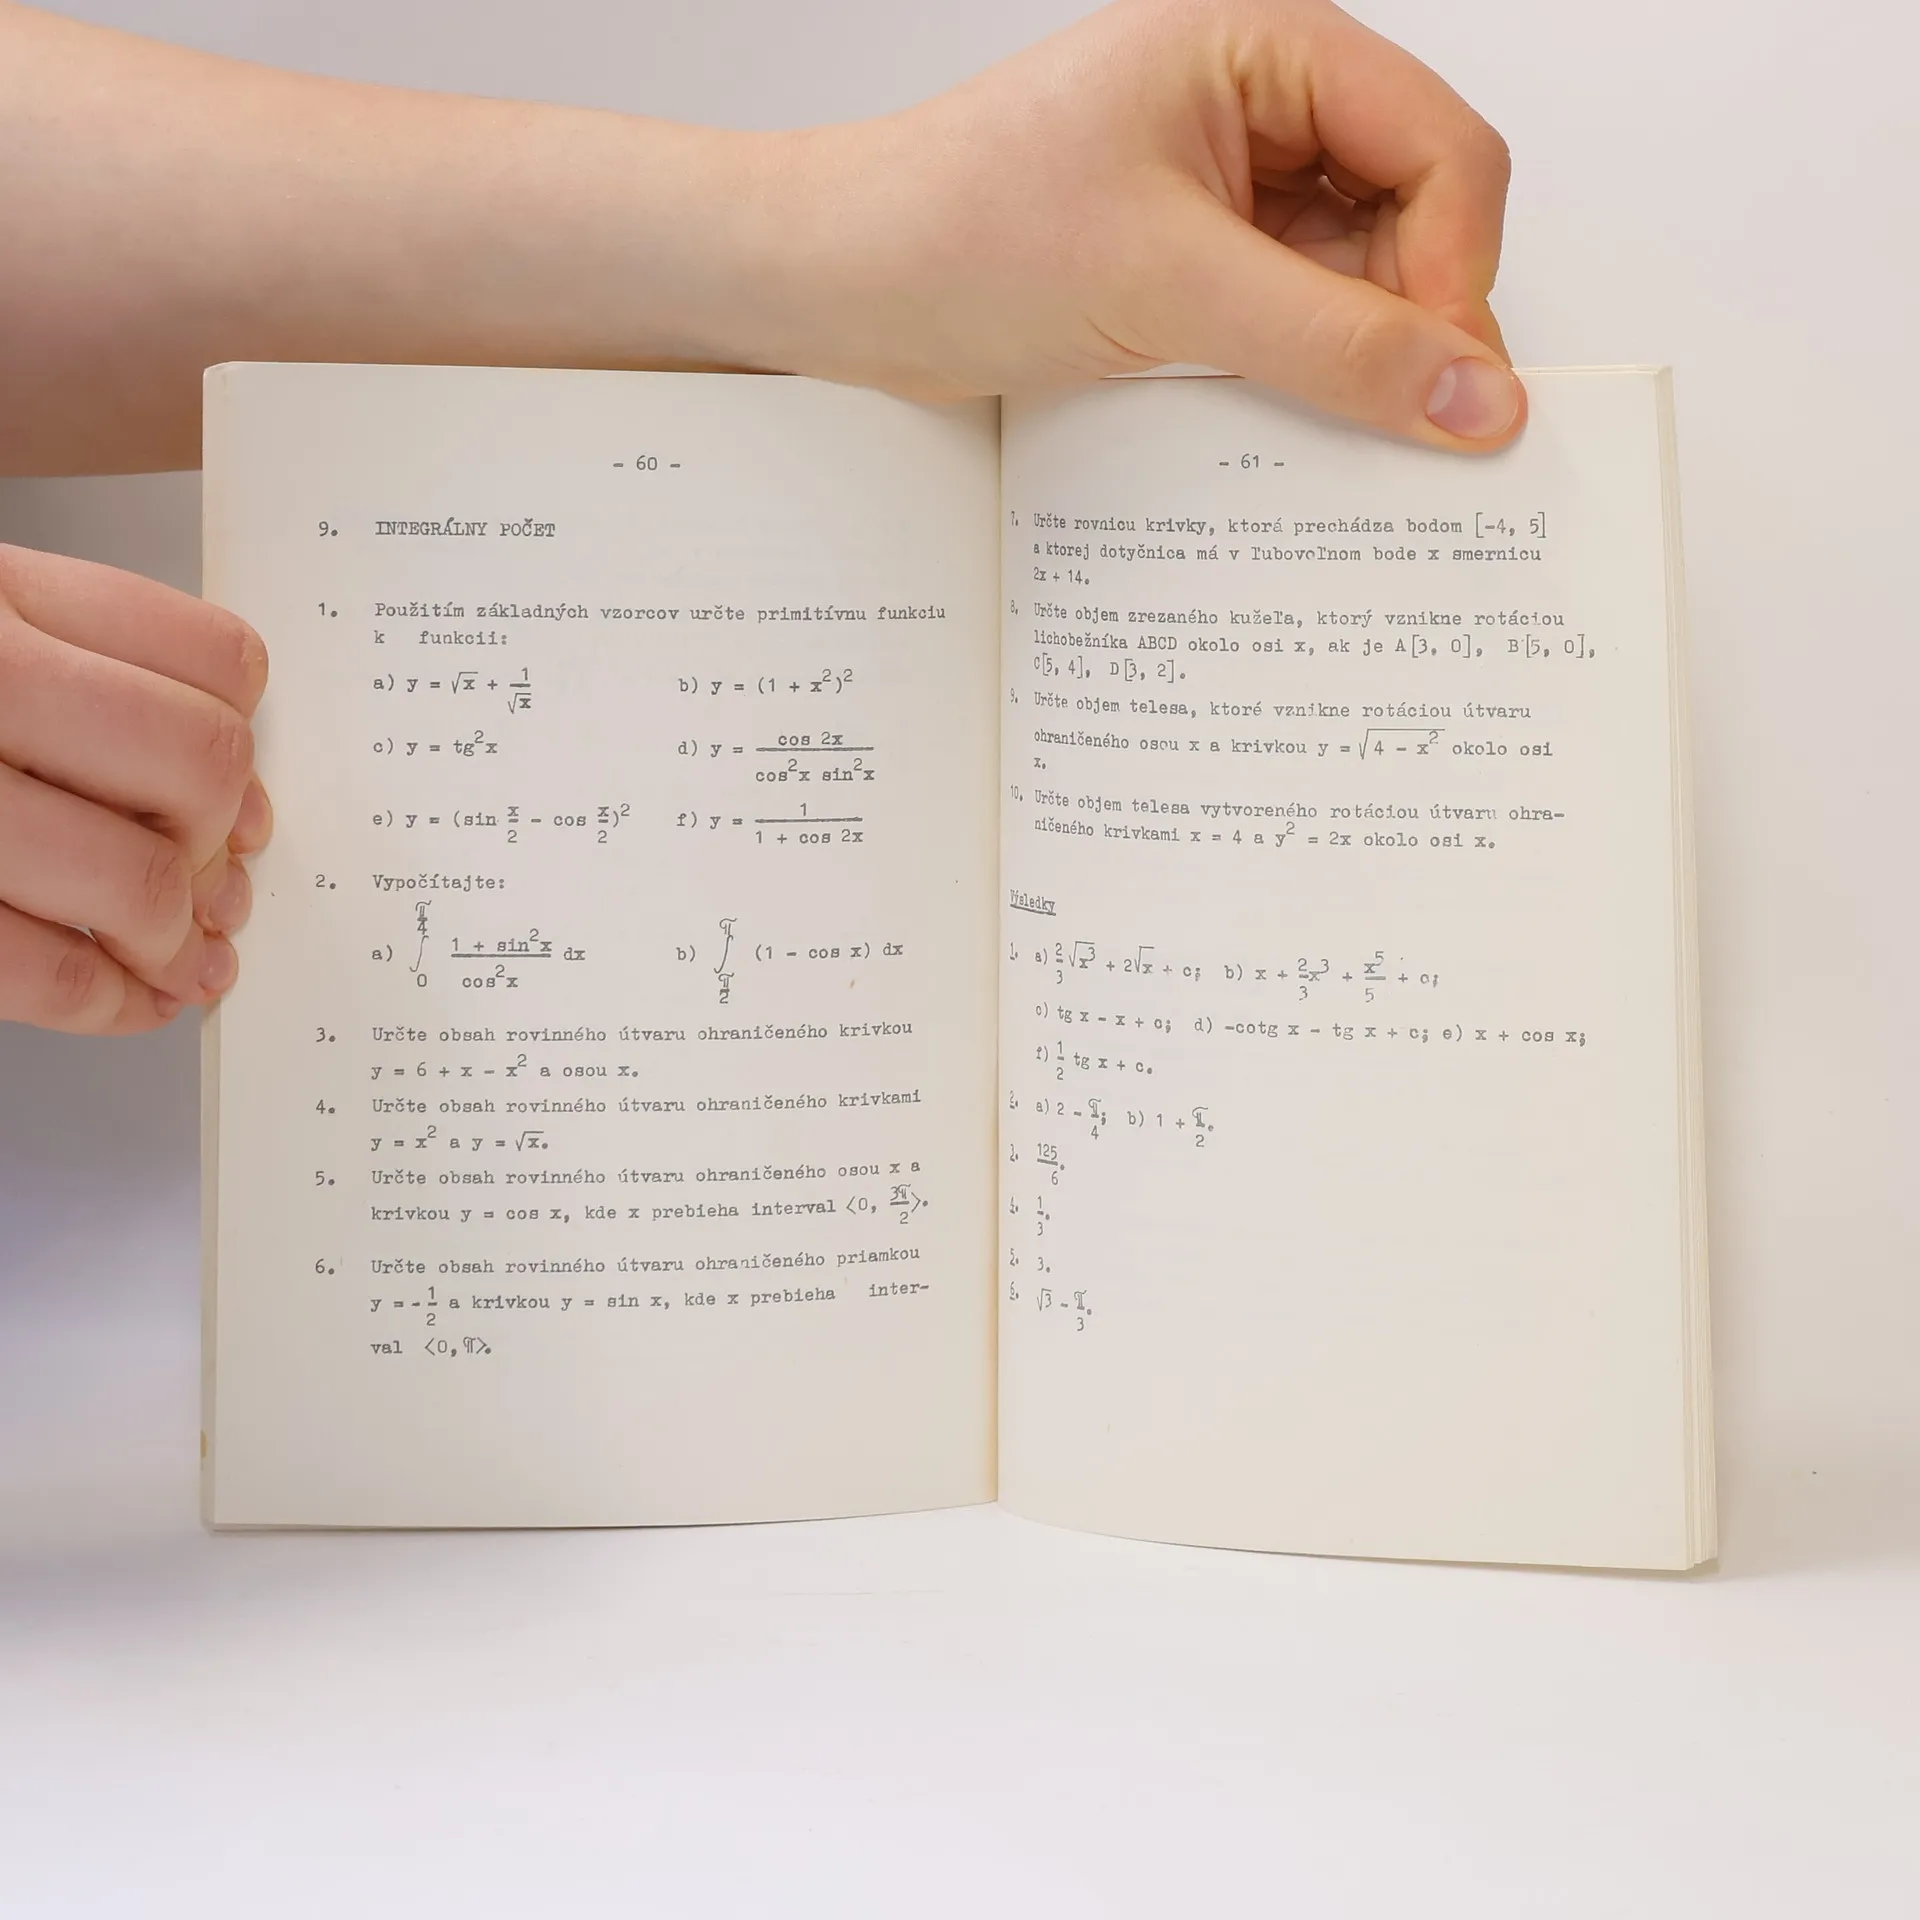 - 60 -
9. INTEGRÁLNY POČET
1. Použitím základných vzorcov určte primitívnu funkciu
k funkcii:
a) y = √x + 1/√x b) y = (1 + x²)²
c) y = tg²x d) y = cos 2x / cos²x sin²x
e) y = (sin x/2 - cos x/2)² f) y = 1 / 1 + cos 2x
2. Vypočítajte:
a) ∫₀^(π/4) 1 + sin²x / cos²x dx b) ∫_(π/2)^π (1 - cos x) dx
3. Určte obsah rovinného útvaru ohraničeného krivkou
y = 6 + x - x² a osou x.
4. Určte obsah rovinného útvaru ohraničeného krivkami
y = x² a y = √x.
5. Určte obsah rovinného útvaru ohraničeného osou x a
krivkou y = cos x, kde x prebieha interval <0, 3π/2>.
6. Určte obsah rovinného útvaru ohraničeného priamkou
y = - 1/2 a krivkou y = sin x, kde x prebieha inter-
val <0, π>.
- 61 -
7. Určte rovnicu krivky, ktorá prechádza bodom [-4, 5]
a ktorej dotyčnica má v ľubovoľnom bode x smernicu
2x + 14.
8. Určte objem zrezaného kužeľa, ktorý vznikne rotáciou
lichobežníka ABCD okolo osi x, ak je A[3, 0], B[5, 0],
C[5, 4], D[3, 2].
9. Určte objem telesa, ktoré vznikne rotáciou útvaru
ohraničeného osou x a krivkou y = √4 - x² okolo osi
x.
10. Určte objem telesa vytvoreného rotáciou útvaru ohra-
ničeného krivkami x = 4 a y² = 2x okolo osi x.
Výsledky
1. a) 2/3 √x³ + 2√x + c; b) x + 2/3 x³ + x⁵/5 + c;
c) tg x - x + c; d) -cotg x - tg x + c; e) x + cos x;
f) 1/2 tg x + c.
2. a) 2 - π/4; b) 1 + π/2.
3. 125/6.
4. 1/3.
5. 3.
6. √3 - π/3.